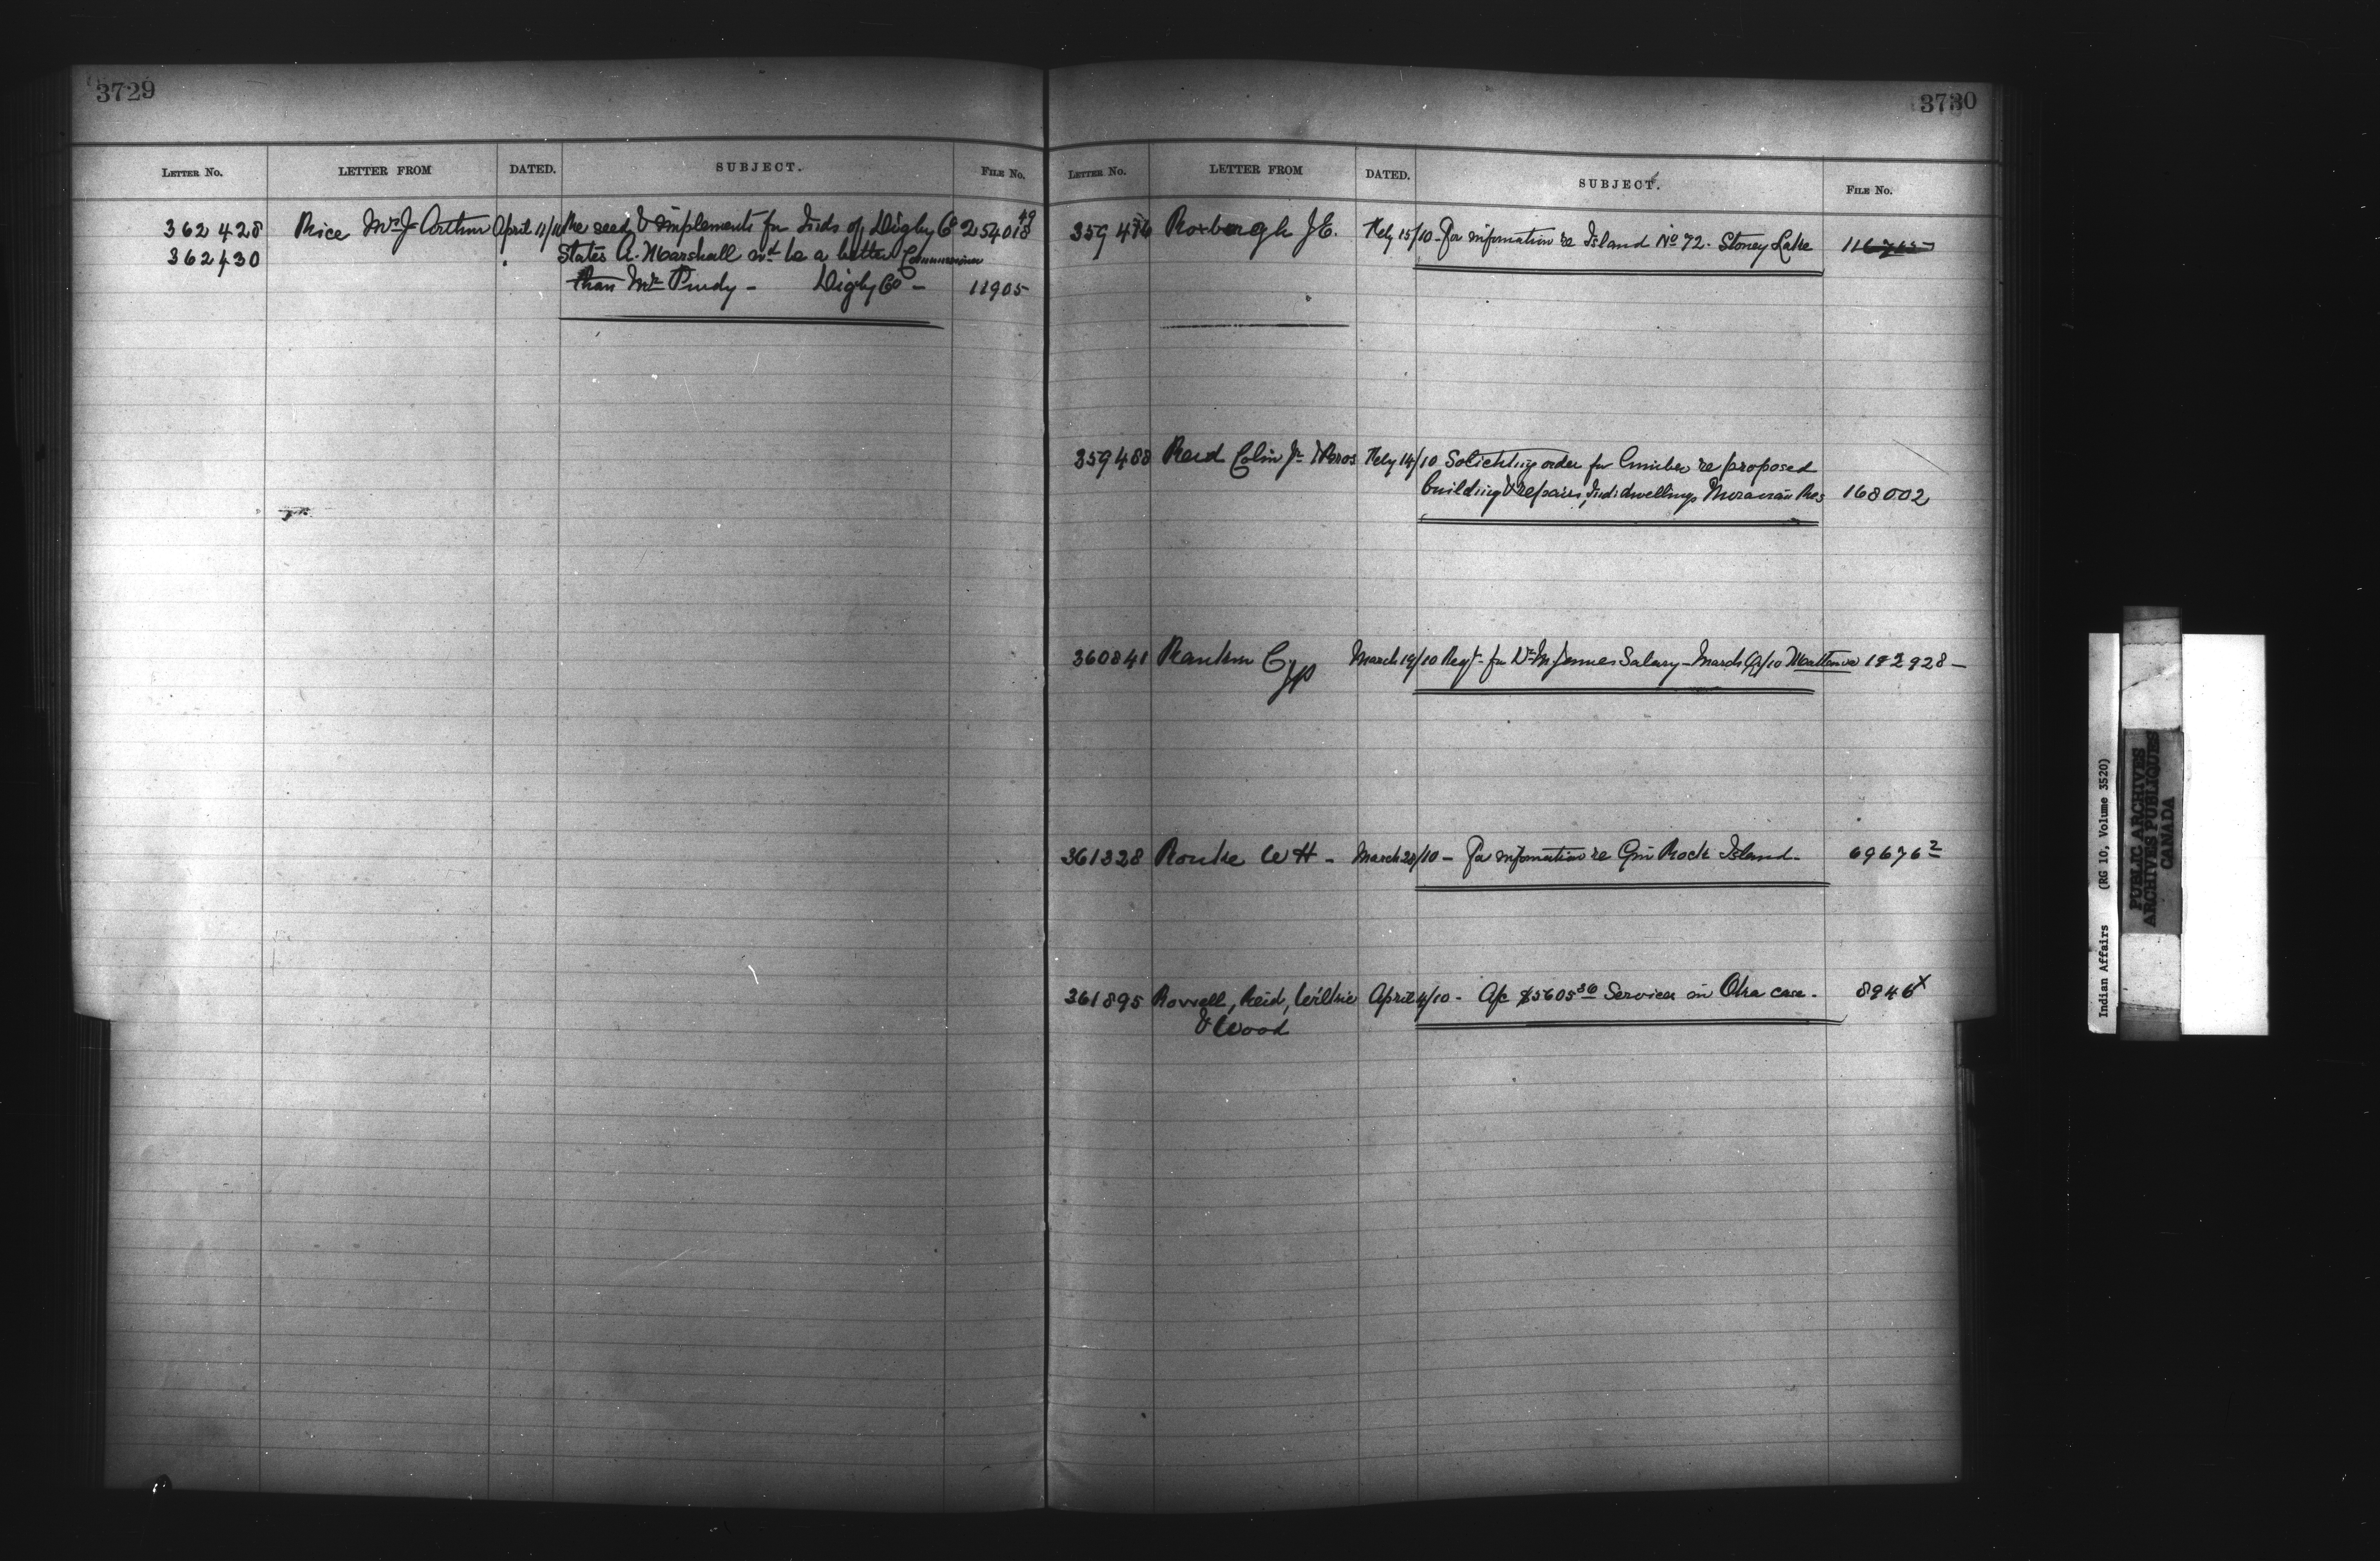 3729
LETTER No. LETTER FROM DATED. SUBJECT. FILE No.
362 428 Rice Mrs J. Arthur April 11/10 Re seed & implements for Inds of Digby Co 254018 49
362430 " States A. Marshall wd be a better Commissioner
than Mr Purdy - Digby Co - 11905
3730
LETTER No. LETTER FROM DATED. SUBJECT. FILE No.
359 476 Roxborgh J.E. Feby 15/10 - For information re Island No 72. Stoney Lake
359488 Reid Colin Jr & Bros Feby 14/10 Soliciting order for lumber re proposed
building & repairs, Indi dwellings Moravian Res 168002
360841 Rankin C. March 19/10 Reqt for Salary - March 192928 -
361328 Rourke W H - March 28/10 - For information re Gin Rock Island - 69676 2
361895 Rowell, Reid, Wilkie April 4/10 - A/c $5605 36 Services in Oka case. 8946 x
& Wood
Indian Affairs (RG 10, Volume 3520)
PUBLIC ARCHIVES
ARCHIVES PUBLIQUES
CANADA